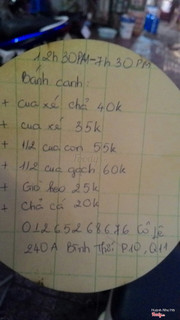 12h30PM-7h30PM
Bánh canh:
+ cua xé chả 40k
+ cua xé 35k
+ 1/2 cua con 55k
+ 1/2 cua gạch 60k
+ Giò heo 25k
+ Chả cá 20k
01265268676 Cô Lệ
240A Bình Thới P10, Q11